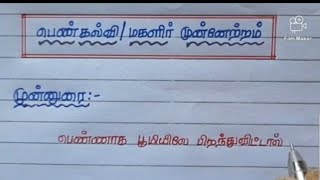 பெண்கல்வி / மகளிர் முன்னேற்றம்
முன்னுரை:-
பெண்ணாக பூமியிலே பிறந்துவிட்டால்